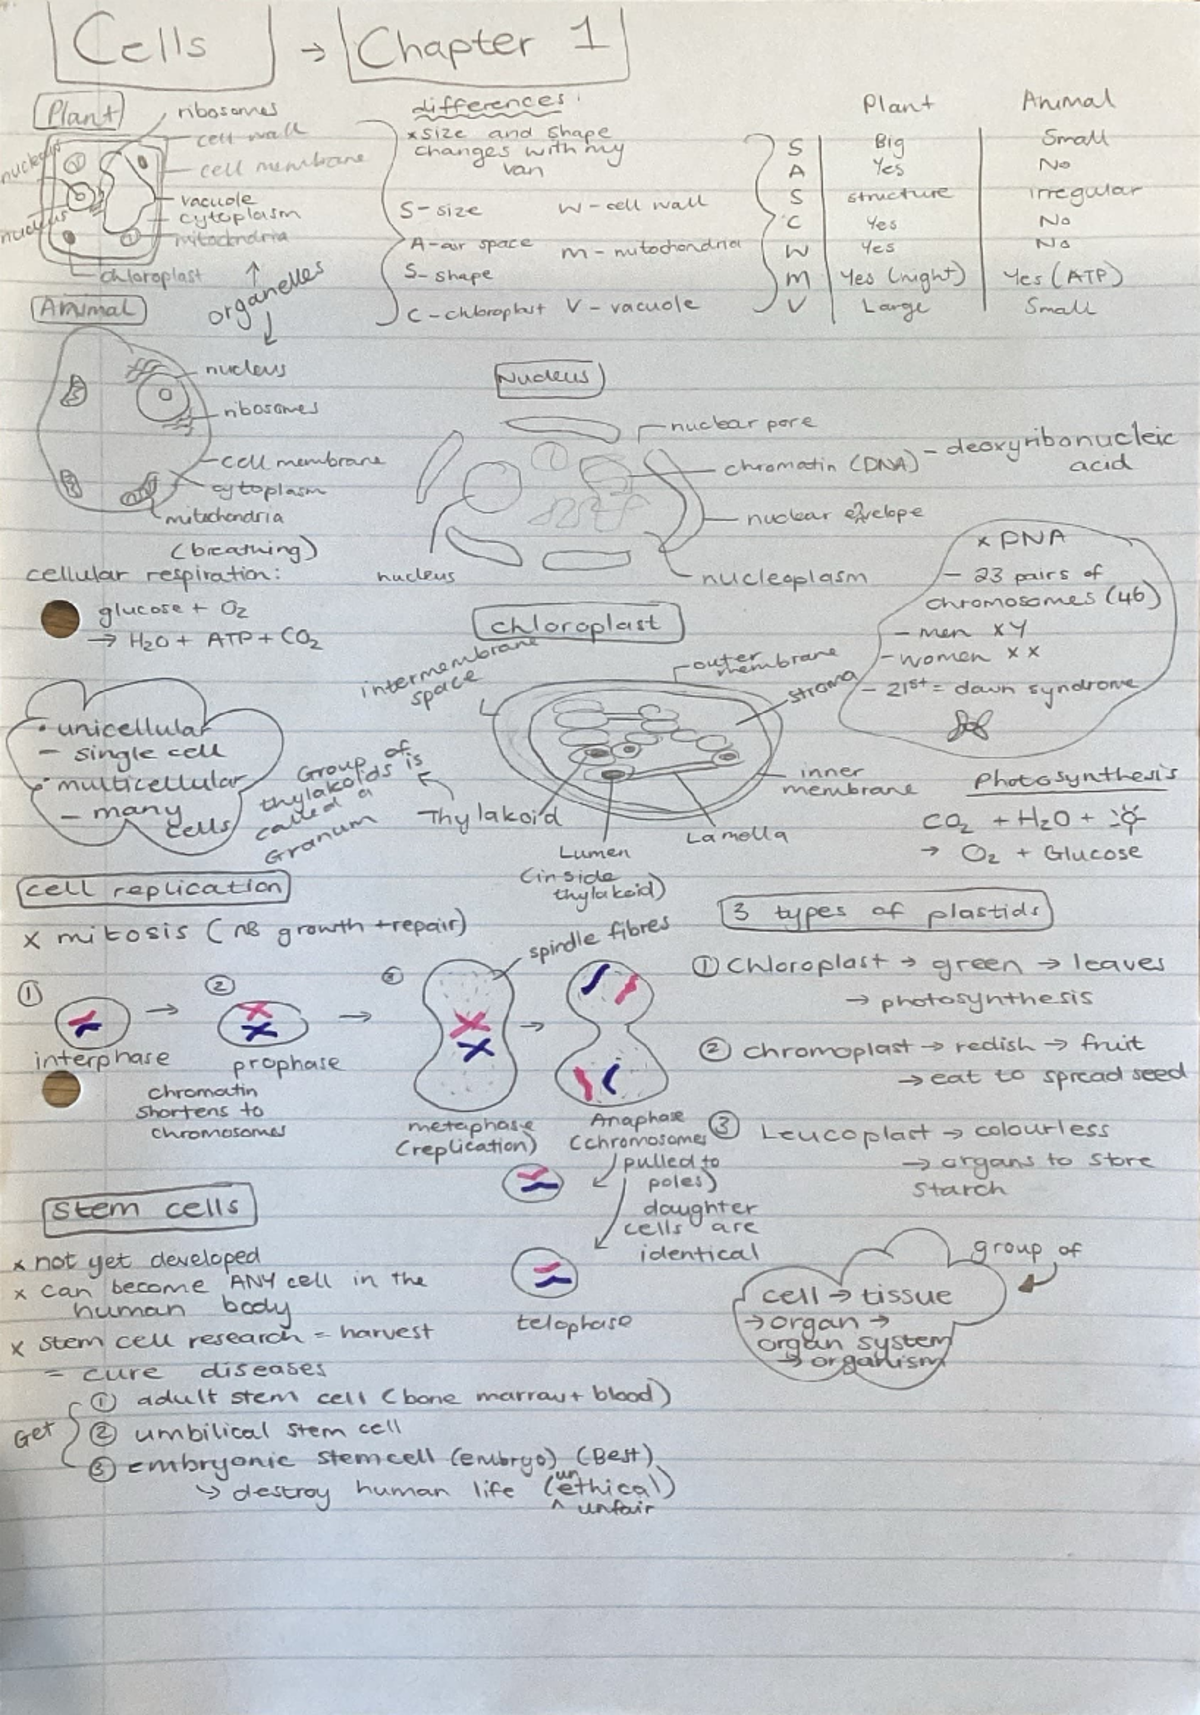 Cells → Chapter 1
Plant
ribosomes
cell wall
cell membrane
vacuole
cytoplasm
nucleus
chloroplast
organelles
differences:
x size and shape
changes with my
van
S - size
W - cell wall
A - air space
m - mitochondria
S - shape
C - chloroplast
V - vacuole
Plant Animal
S Big Small
A Yes No
S structure irregular
C Yes No
W Yes No
m Yes (night) Yes (ATP)
V Large Small
Animal
nucleus
ribosomes
cell membrane
cytoplasm
mitochdria
(breathing)
cellular respiration:
glucose + O₂
→ H₂O + ATP + CO₂
Nucleus
nuclear pore
chromatin (DNA) - deoxyribonucleic
acid
nuclear envelope
nucleoplasm
nucleus
x DNA
- 23 pairs of
chromosomes (46)
- men XY
- women XX
- 21st = down syndrome
• unicellular
- single cell
• multicellular
- many
cells
chloroplast
intermembrane
space
outer
membrane
stroma
inner
membrane
Lamella
Lumen
(inside
thylakoid)
Thylakoid
Group of
thylakoids is
called a
Granum
Photosynthesis
CO₂ + H₂O +
→ O₂ + Glucose
cell replication
x mitosis (nB growth + repair)
①
interphase
②
prophase
chromatin
shortens to
chromosomes
spindle fibres
metaphase
(replication)
Anaphase
(chromosomes
pulled to
poles)
daughter
cells are
identical
telophase
3 types of plastids
① Chloroplast → green → leaves
→ photosynthesis
② chromoplast → redish → fruit
→ eat to spread seed
③ Leucoplast → colourless
→ organs to store
starch
group of
cell → tissue
→ organ →
organ system
→ organism
Stem cells
x not yet developed
x can become ANY cell in the
human body
x stem cell research = harvest
= cure diseases
Get
① adult stem cell (bone marrow + blood)
② umbilical stem cell
③ embryonic stemcell (embryo) (Best)
↳ destroy human life (unethical)
^ unfair